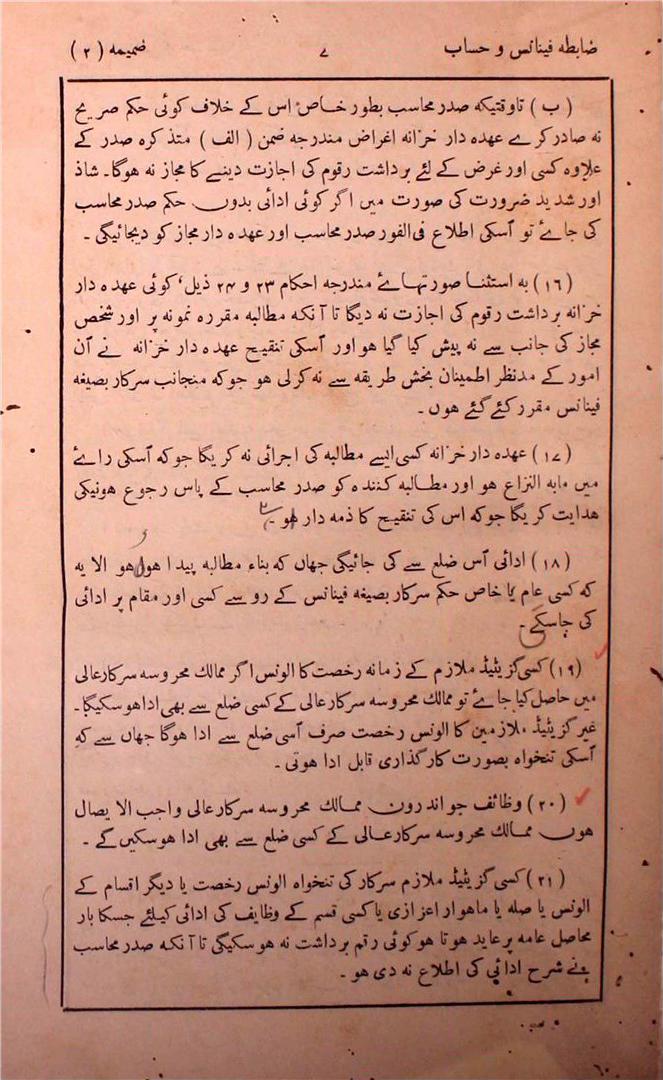 ضابطه فینانس و حساب ۷ ضمیمه (۲)
(ب) تاوقتیکه صدر محاسب بطور خاص اس کے خلاف کوئی حکم صریح
نه صادر کرے عهده دار خزانه اغراض مندرجه ضمن (الف) متذکره صدر کے
علاوه کسی اور غرض کے لئے برداشت رقوم کی اجازت دینے کا مجاز نه هوگا۔ شاذ
اور شدید ضرورت کی صورت میں اگر کوئی ادائی بدون حکم صدر محاسب
کی جائے تو اسکی اطلاع فی الفور صدر محاسب اور عهده دار مجاز کو دیجائیگی۔
(۱۶) به استثنا صورتهائے مندرجه احکام ۲۳ و ۲۴ ذیل، کوئی عهده دار
خزانه برداشت رقوم کی اجازت نه دیگا تا آنکه مطالبه مقرره نمونه پر اور شخص
مجاز کی جانب سے نه پیش کیا گیا هو اور اسکی تنقیح عهده دار خزانه نے آن
امور کے مدنظر اطمینان بخش طریقه سے نه کرلی هو جوکه منجانب سرکار بصیغه
فینانس مقرر کئے گئے هوں۔
(۱۷) عهده دار خزانه کسی ایسے مطالبه کی اجرائی نه کریگا جوکه آسکی رائے
میں مابه النزاع هو اور مطالبه کننده کو صدر محاسب کے پاس رجوع هونیکی
هدایت کریگا جوکه اس کی تنقیح کا ذمه دار هو۔
(۱۸) ادائی آس ضلع سے کی جائیگی جهاں که بناء مطالبه پیدا هو الا یه
که کسی عام یا خاص حکم سرکار بصیغه فینانس کے رو سے کسی اور مقام پر ادائی
کی جاسکے۔
(۱۹) کسی گزیٹیڈ ملازم کے زمانه رخصت کا الونس اگر ممالك محروسه سرکارعالی
میں حاصل کیا جائے تو ممالك محروسه سرکار عالی کے کسی ضلع سے بھی ادا هوسکیگا۔
غیر گزیٹیڈ ملازمین کا الونس رخصت صرف آسی ضلع سے ادا هوگا جهاں سے که
آسکی تنخواه بصورت کارگذاری قابل ادا هوتی۔
(۲۰) وظائف جو اندرون ممالك محروسه سرکارعالی واجب الایصال
هوں ممالك محروسه سرکارعالی کے کسی ضلع سے بھی ادا هوسکیں گے۔
(۲۱) کسی گزیٹیڈ ملازم سرکار کی تنخواه الونس رخصت یا دیگر اقسام کے
الونس یا صله یا ماهوار اعزازی یا کسی قسم کے وظایف کی ادائی کیلئے جسکا بار
محاصل عامه پر عاید هوتا هو کوئی رقم برداشت نه هوسکیگی تا آنکه صدر محاسب
نے شرح ادائی کی اطلاع نه دی هو۔